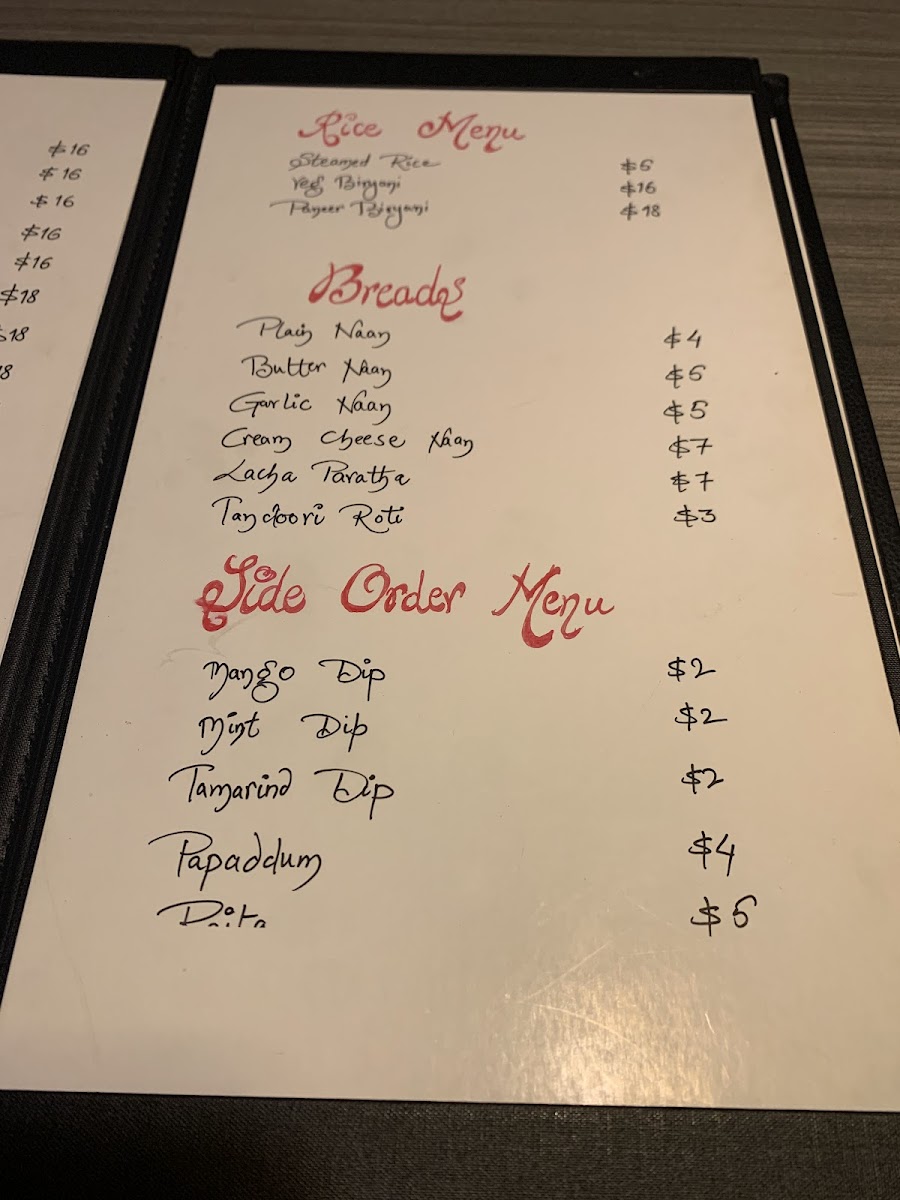 $16
$16
$16
$16
$16
$18
$18
Rice Menu
Steamed Rice $5
Veg Biryani $16
Paneer Biryani $18
Breads
Plain Naan $4
Butter Naan $5
Garlic Naan $5
Cream Cheese Naan $7
Lacha Paratha $7
Tandoori Roti $3
Side Order Menu
Mango Dip $2
Mint Dip $2
Tamarind Dip $2
Papaddum $4
Raita $5